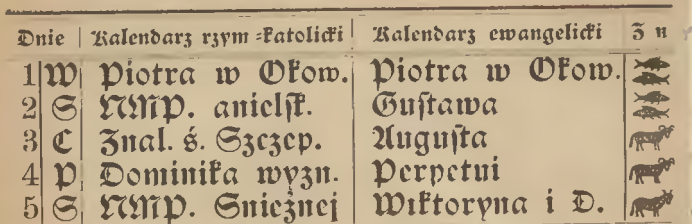 Dnie | Kalendarz rzym.=katolicki | Kalendarz ewangelicki | Zn
1 W Piotra w Okow. Piotra w Okow.
2 S NMP. anielsk. Gustawa
3 C Znal. ś. Szczep. Augusta
4 P Dominika wyzn. Perpetui
5 S NMP. Snieżnej Wiktoryna i D.